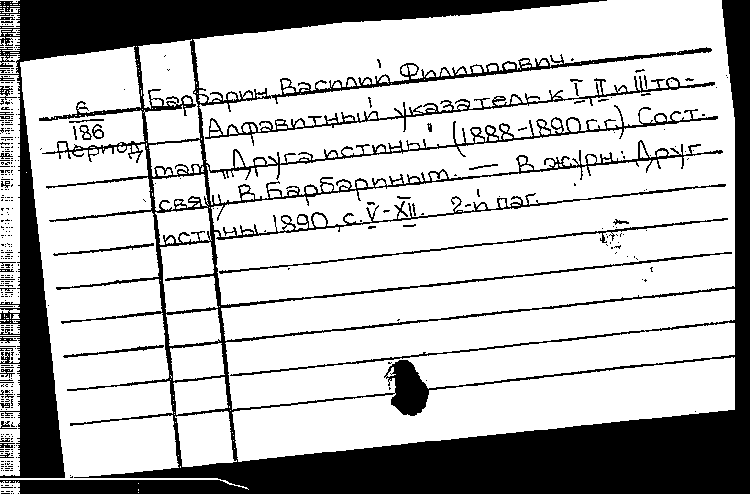 Барбарин, Василий Филиппович.
6
186
Период
Алфавитный указатель к I, II и III то-
мам „Друга истины". (1888-1890 г.г.) Сост.
свящ. В. Барбариным. — В журн.: Друг
истины. 1890, с. V-XII. 2-й паг.